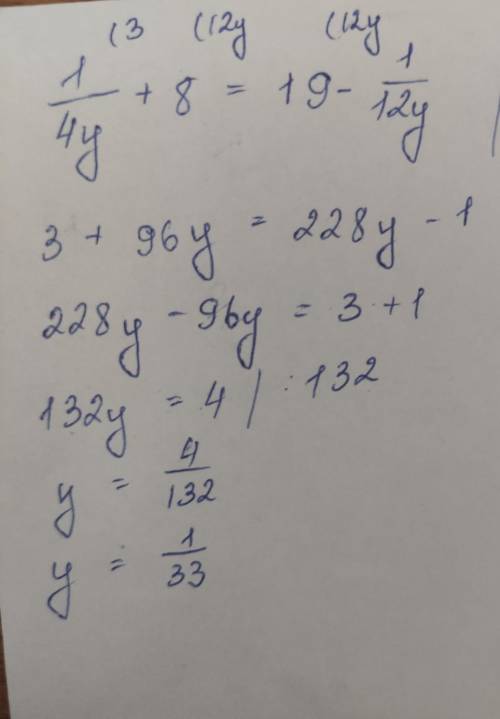 (3 (12y (12y
1/4y + 8 = 19 - 1/12y
3 + 96y = 228y - 1
228y - 96y = 3 + 1
132y = 4 | : 132
y = 4/132
y = 1/33